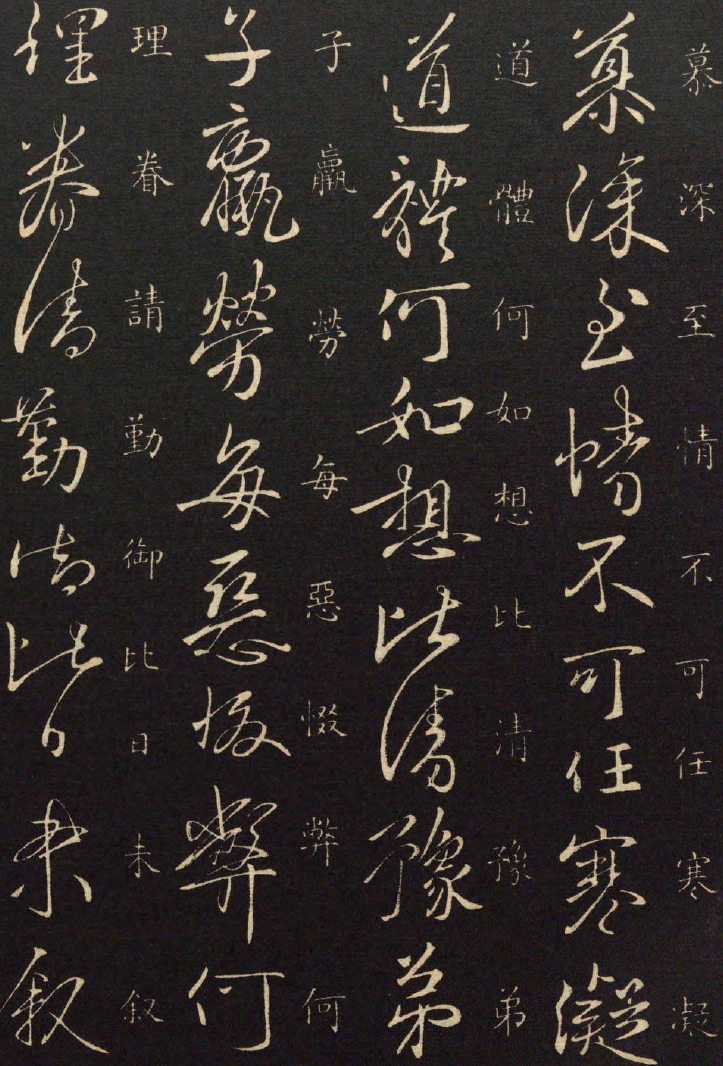 慕深至情不可任寒凝
慕深至情不可任寒凝
道體何如想比清豫弟
道體何如想比清豫弟
子羸勞每惡惙弊何
子羸勞每惡惙弊何
理眷請勤御比日未叙
理眷請勤御比日未叙